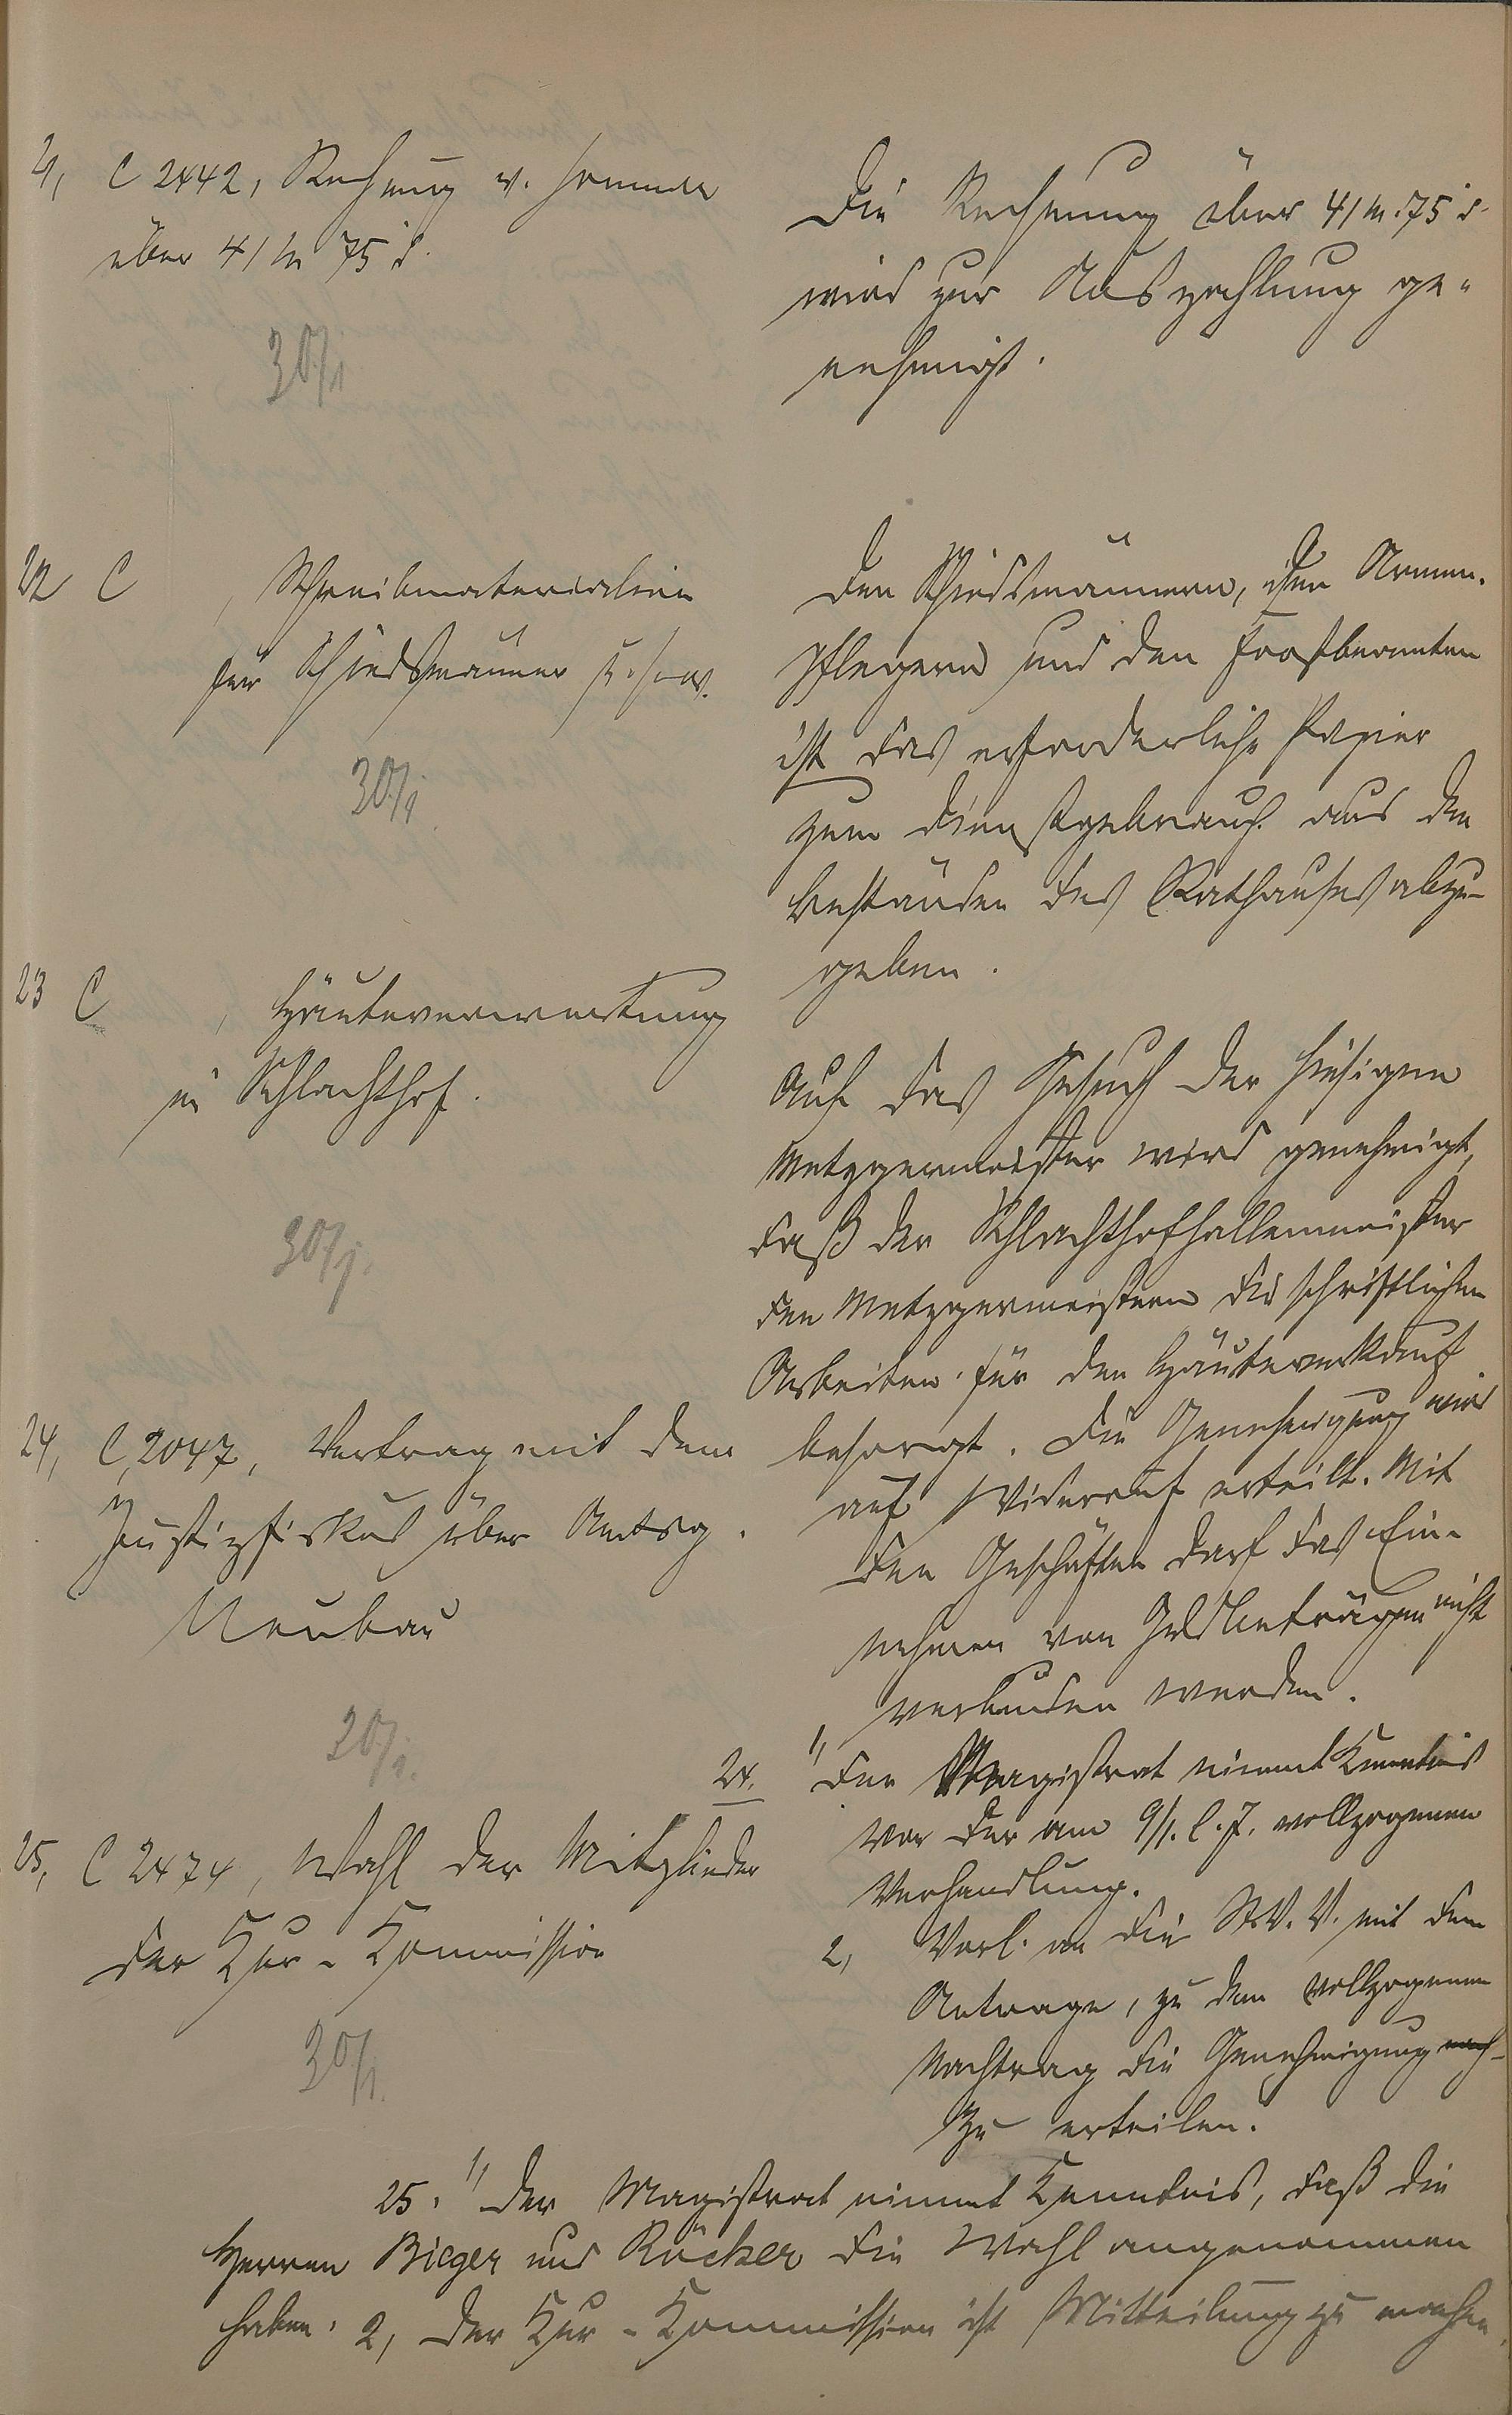 21, C 2442, Rechnung v. Hommer
über 41 M 75 d.
30/1
Die Rechnung über 41 M. 75 d.
wird zur Auszahlung ge-
nehmigt.
22 C , Schreibmaterialien
für Schiedsmänner u.s.w.
30/1
Den Schiedsmännern, den Armen-
pflegern und den Forstbeamten
ist das erforderliche Papier
zum Dienstgebrauch aus den
Beständen des Rathauses abzu-
geben.
23 C , Häuteverwertung
in Schlachthof.
30/1.
Auf das Gesuch der hiesigen
Metzgermeister wird genehmigt,
daß der Schlachthofhallenmeister
den Metzgermeistern die schriftlichen
Arbeiten für den Häuteverkauf
besorgt. Die Genehmigung wird
auf Widerruf erteilt. Mit
den Geschäften darf das Ein-
nehmen von Geldbeträgen nicht
verbunden werden.
24, C, 2047, Vertrag mit dem
Justizfiskus über Amtsg.
Neubau
30/1.
24. 1, Der Magistrat nimmt Kenntnis
von der am 9/1. l. J. vollzogenen
Verhandlung.
2, Vorl. an die St. V. V. mit dem
Antrage, zu dem vollzogenen
Nachtrag die Genehmigung nach-
zu erteilen.
25, C 2474, Wahl der Mitglieder
der Kur-Kommission
30/1.
25. 1, Der Magistrat nimmt Kenntnis, daß die
Herren Bieger und Röcker die Wahl angenommen
haben. 2, Der Kur-Kommission ist Mitteilung zu machen.